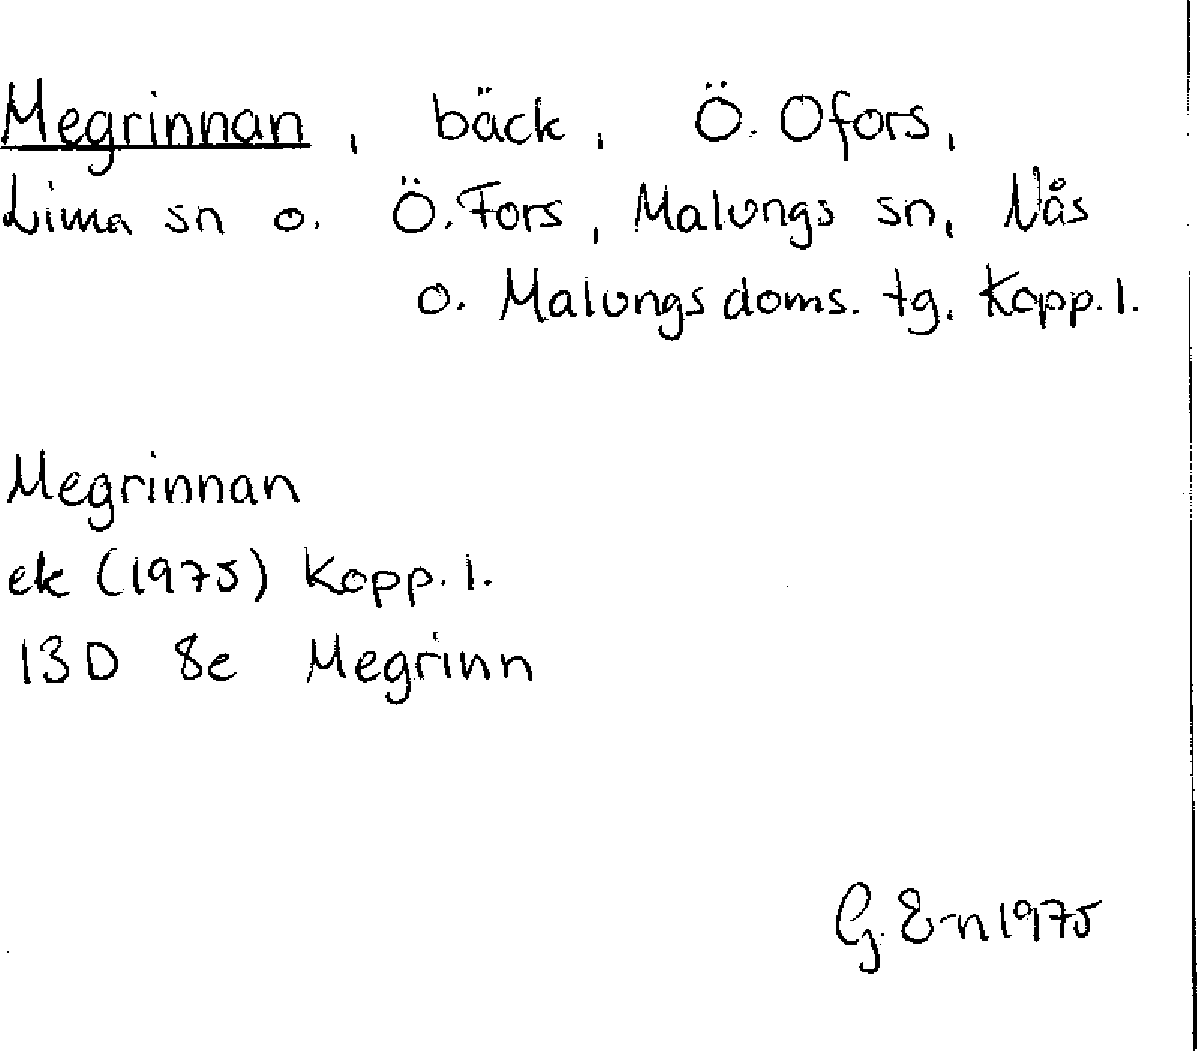 Megrinnan, bäck, Ö. Ofors,
Lima sn o. Ö. Fors, Malungs sn, Nås
o. Malungs doms. tg. Kopp. l.
Megrinnan
ek (1975) Kopp. l.
13D 8e Megrinn
G. E-n 1975